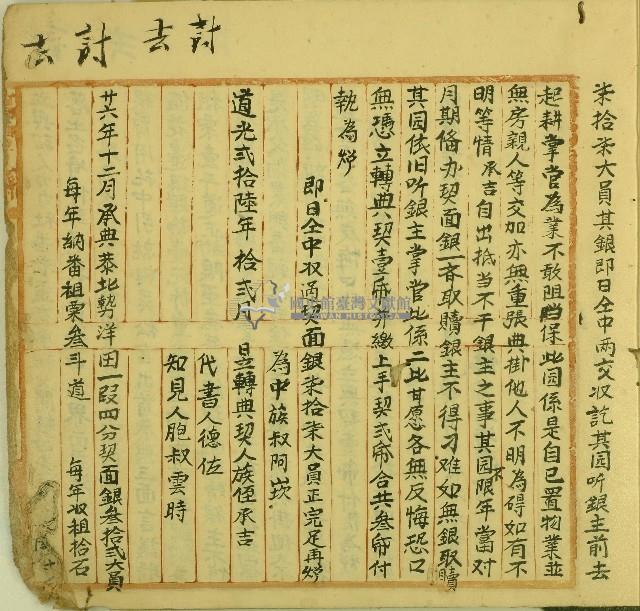 討去討去
柒拾柒大員其銀即日仝中兩交收訖其园听銀主前去
起耕掌管為業不敢阻擋保此园係是自己置物業並
無房親人等交加亦無重張典掛他人不明為碍如有不
明等情承吉自出抵当不干銀主之事其园不限年當对
月期俻办契面銀一齐取贖銀主不得刁难如無銀取贖
其园依旧听銀主掌管此係二比甘愿各無反悔恐口
無憑立轉典契壹帋并繳上手契弍帋合共叁帋付
執為炤
即日仝中收過契面銀柒拾柒大員正完足再炤
為中族叔阿崁
道光弍拾陸年拾弍月 日立轉典契人族侄承吉
代書人德佐
知見人胞叔雲時
廿六年十二月承典蔡北勢洋田一段四分契面銀叁拾弍大員
每年納番租粟叁斗道 每年收租拾石
國史館臺灣文獻館
TAIWAN HISTORICA